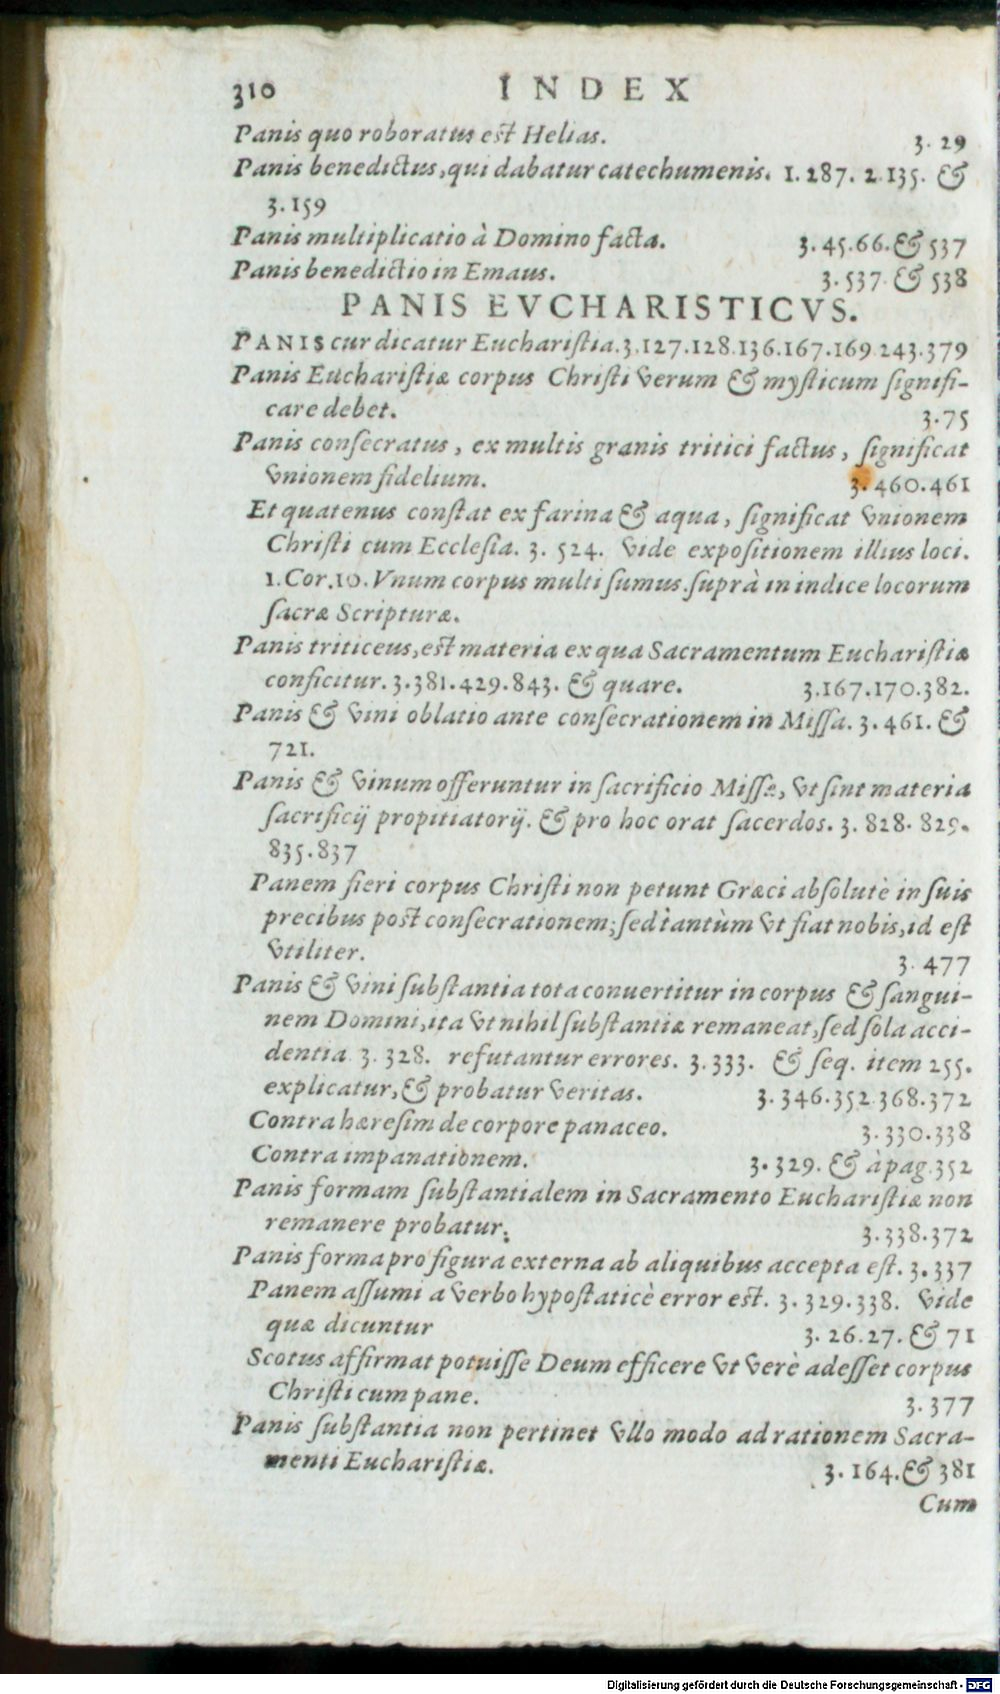 310 INDEX
Panis quo roboratus est Helias. 3. 29
Panis benedictus, qui dabatur catechumenis. 1. 287. 2. 135. &
3. 159
Panis multiplicatio à Domino facta. 3. 45. 66. & 537
Panis benedictio in Emaus. 3. 537. & 538
PANIS EVCHARISTICVS.
PANIS cur dicatur Eucharistia. 3. 127. 128. 136. 167. 169. 243. 379
Panis Eucharistiæ corpus Christi verum & mysticum signifi-
care debet. 3. 75
Panis consecratus, ex multis granis tritici factus, significat
vnionem fidelium. 3. 460. 461
Et quatenus constat ex farina & aqua, significat vnionem
Christi cum Ecclesia. 3. 524. Vide expositionem illius loci.
1. Cor. 10. Vnum corpus multi sumus. suprà in indice locorum
sacræ Scripturæ.
Panis triticeus, est materia ex qua Sacramentum Eucharistiæ
conficitur. 3. 381. 429. 843. & quare. 3. 167. 170. 382.
Panis & vini oblatio ante consecrationem in Missa. 3. 461. &
721.
Panis & vinum offeruntur in sacrificio Missæ, vt sint materia
sacrificij propitiatorij. & pro hoc orat sacerdos. 3. 828. 829.
835. 837
Panem fieri corpus Christi non petunt Græci absolutè in suis
precibus post consecrationem; sed tantùm vt fiat nobis, id est
vtiliter. 3. 477
Panis & vini substantia tota conuertitur in corpus & sangui-
nem Domini, ita vt nihil substantiæ remaneat, sed sola acci-
dentia. 3. 328. refutantur errores. 3. 333. & seq. item 255.
explicatur, & probatur veritas. 3. 346. 352. 368. 372
Contra hæresim de corpore panaceo. 3. 330. 338
Contra impanationem. 3. 329. & à pag. 352
Panis formam substantialem in Sacramento Eucharistiæ non
remanere probatur. 3. 338. 372
Panis forma pro figura externa ab aliquibus accepta est. 3. 337
Panem assumi a verbo hypostaticè error est. 3. 329. 338. Vide
quæ dicuntur 3. 26. 27. & 71
Scotus affirmat potuisse Deum efficere vt verè adesset corpus
Christi cum pane. 3. 377
Panis substantia non pertinet vllo modo ad rationem Sacra-
menti Eucharistiæ. 3. 164. & 381
Cum
Digitalisierung gefördert durch die Deutsche Forschungsgemeinschaft - DFG